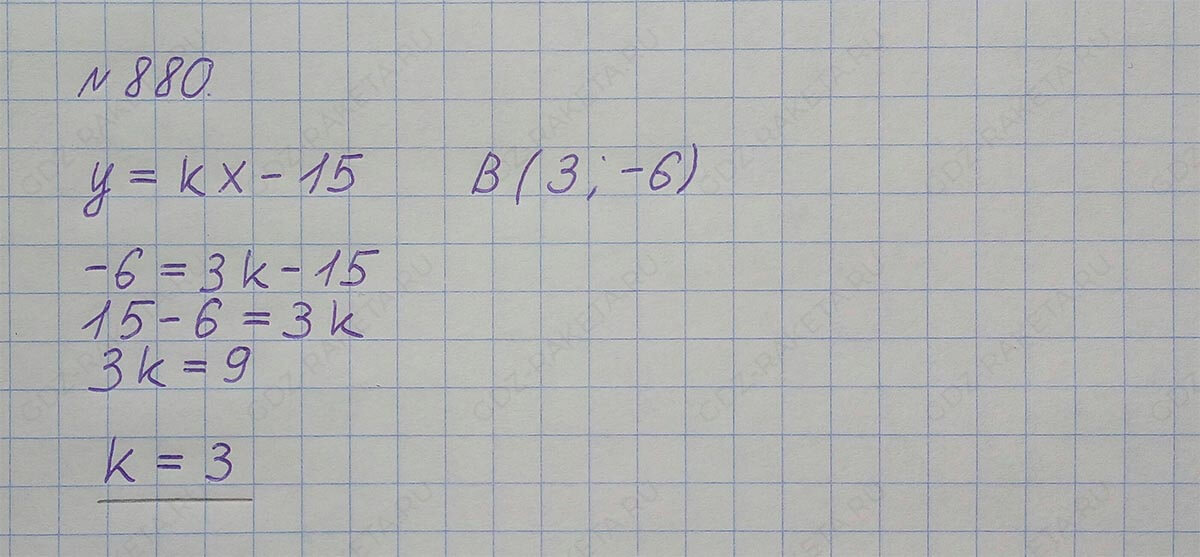 № 880.
y = kx - 15 B(3; -6)
-6 = 3k - 15
15 - 6 = 3k
3k = 9
k = 3
GDZ-RAKETA.RU